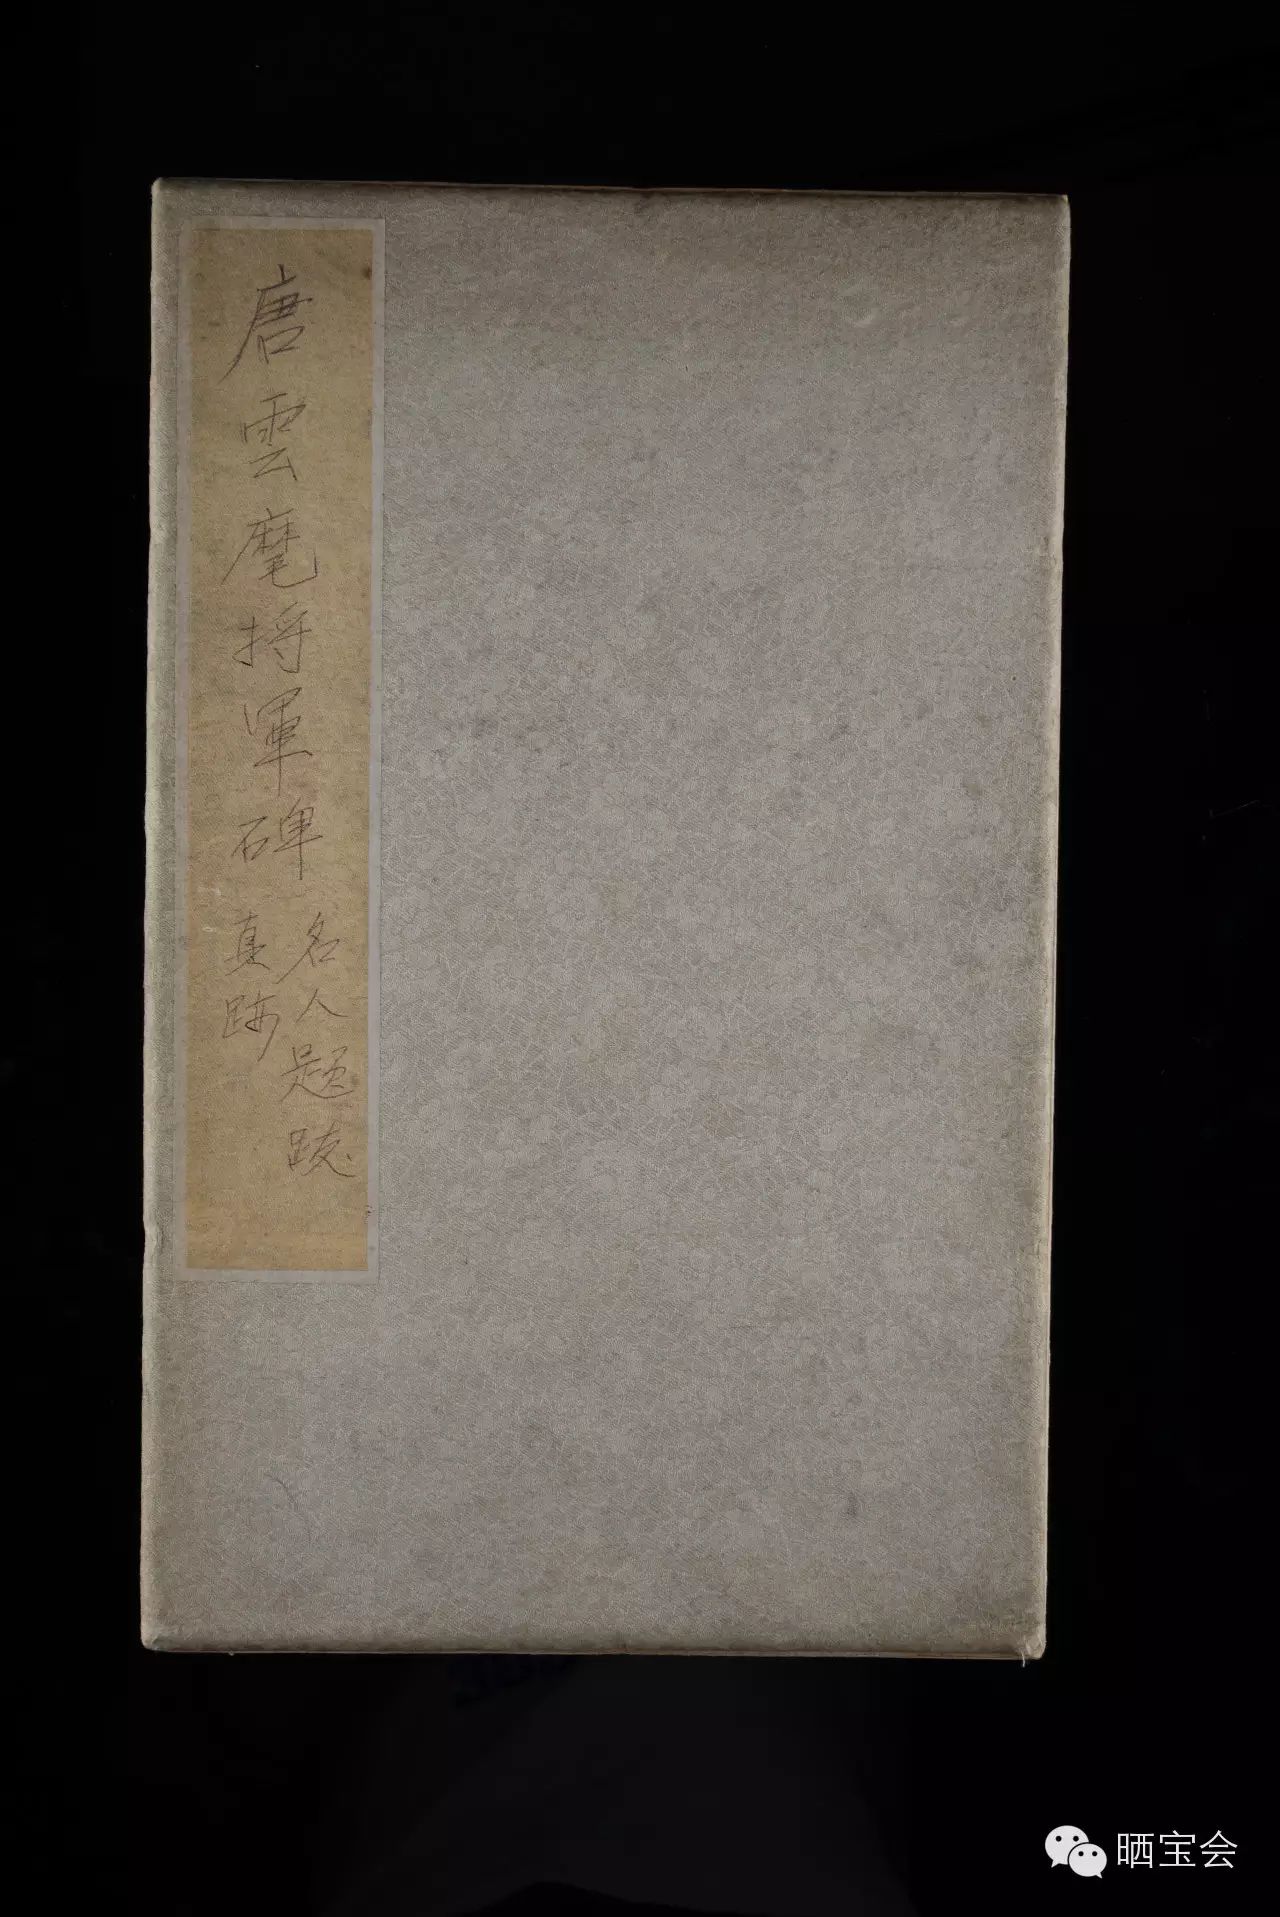 唐雲麾将軍碑
名人題跋
真跡
晒宝会